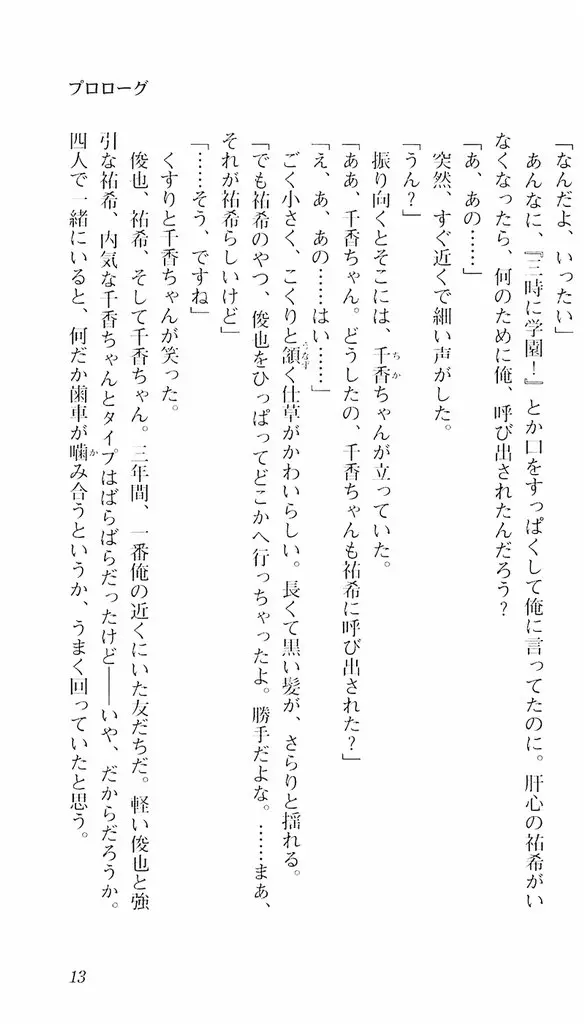 プロローグ
「なんだよ、いったい」
あんなに、『三時に学園！』とか口をすっぱくして俺に言ってたのに。肝心の祐希がい
なくなったら、何のために俺、呼び出されたんだろう？
「あ、あの……」
突然、すぐ近くで細い声がした。
「うん？」
振り向くとそこには、千香ちゃんが立っていた。
ちか
「ああ、千香ちゃん。どうしたの、千香ちゃんも祐希に呼び出された？」
「え、あ、あの……はい……」
ごく小さく、こくりと頷く仕草がかわいらしい。長くて黒い髪が、さらりと揺れる。
うなず
「でも祐希のやつ、俊也をひっぱってどこかへ行っちゃったよ。勝手だよな。……まあ、
それが祐希らしいけど」
「……そう、ですね」
くすりと千香ちゃんが笑った。
俊也、祐希、そして千香ちゃん。三年間、一番俺の近くにいた友だちだ。軽い俊也と強
引な祐希、内気な千香ちゃんとタイプはばらばらだったけど――いや、だからだろうか。
四人で一緒にいると、何だか歯車が噛み合うというか、うまく回っていたと思う。
か
13